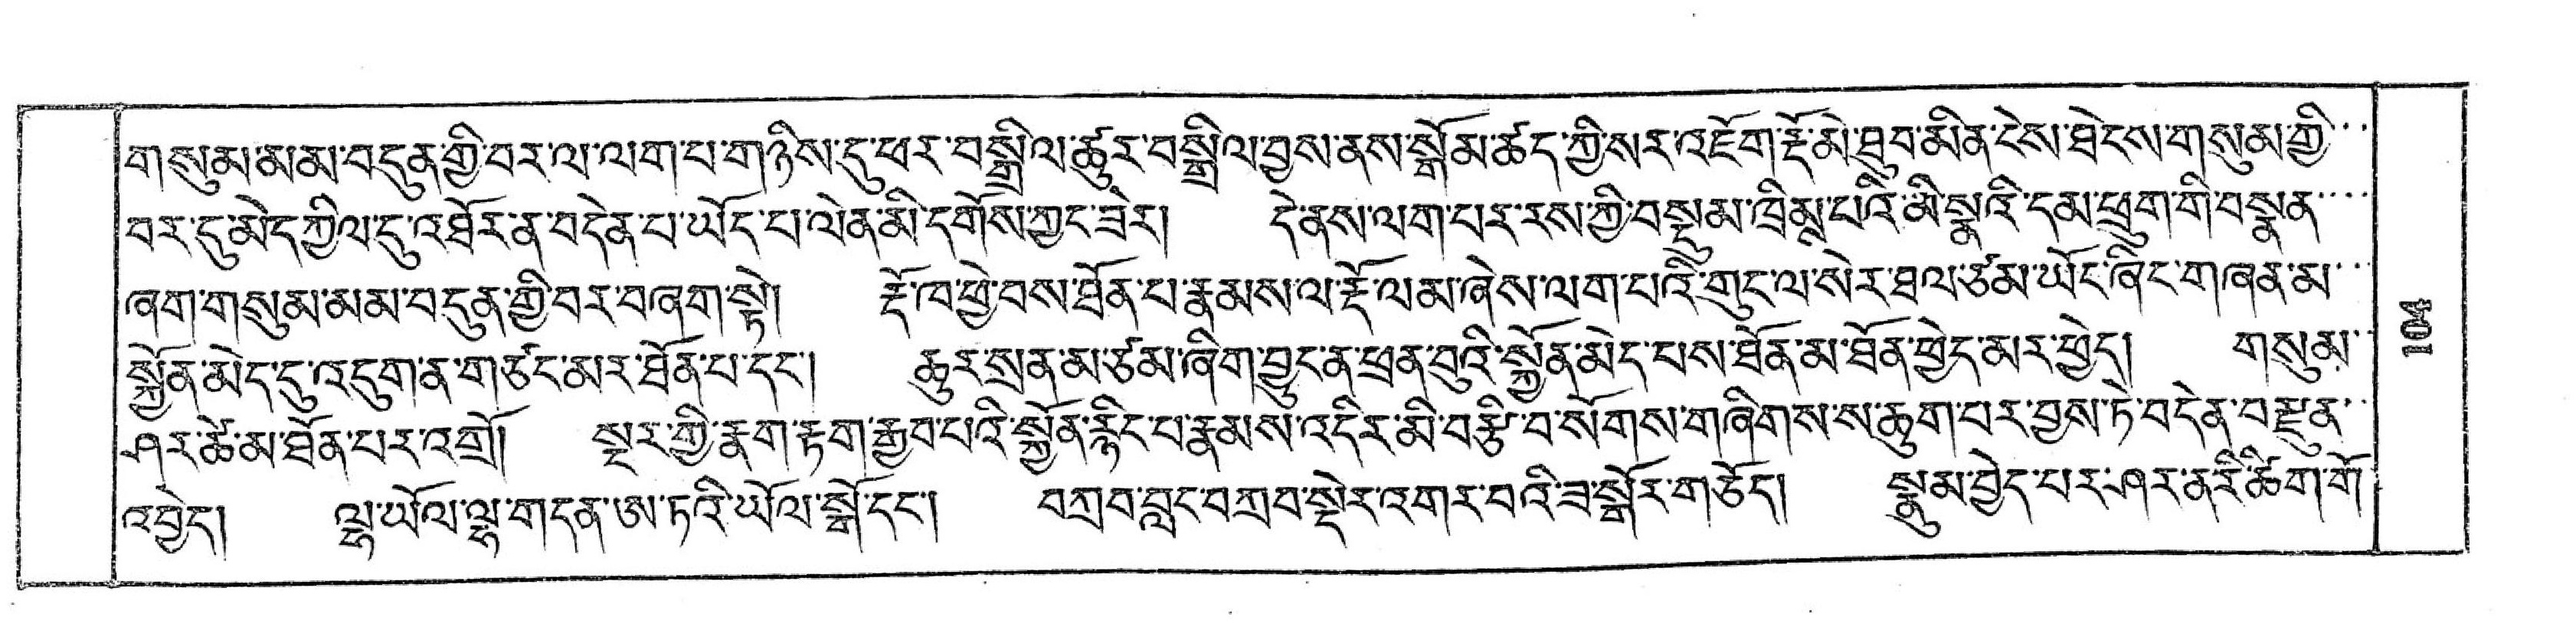 གསུམ་མམ་བདུན་གྱི་བར་ལ་ལག་པ་གཉིས་དུ་ཕར་བསྒྲིལ་ཚུར་བསྒྲིལ་བྱས་ནས་སྒོམ་ཚད་ཀྱི་སར་འཇོག་རྡོ་མེ་ཐུབ་མིན་ངེས་ཐེངས་གསུམ་གྱི
བར་དུ་མེད་ཀྱིལ་དུ་འཐོར་ན་བདེན་པ་ཡོད་པ་ལེན་མི་དགོས་ཀྱང་ཟེར། དེ་ནས་ལག་པར་རས་ཀྱི་བསྡུམ་ཁྲིམྲ་པའི་མི་སྣའི་དམ་ཕྲུག་གི་བསྣན
ཞག་གསུམ་མམ་བདུན་གྱི་བར་བཞག་སྟེ། རྡོ་ཁ་ཕྱེ་བས་ཐོན་པ་རྣམས་ལ་རྡོ་ལམ་ཞེས་ལག་པའི་གུང་ལ་སེར་ཐལ་ཙམ་ཡོང་ཞིང་གཞན་མ
སྐྱོན་མེད་དུ་འདུག་ན་གཙང་མར་ཐོན་པ་དང་། ཆུར་སྲན་མ་ཙམ་ཞིག་བྱུང་ན་ཕྲན་བུའི་སྐྱོན་མེད་པས་ཐོན་མ་ཐོན་ཕྱེད་མར་ཕྱེད། གསུམ
ཤར་ཚེ་མ་ཐོན་པར་འགྲོ། སྔར་ཀྱི་རྣག་རྟག་རྒྱབ་པའི་སྐྱོན་རྙིང་པ་རྣམས་འདིར་མི་བརྩི་བ་སོགས་གཞིགས་ས་ཆུག་པར་བྱས་ཏེ་བདེན་བརྫུན
འབྱེད། ལྷ་ཡོལ་ལྷ་གདན་ཨ་ཏའི་ཡོལ་སྒོ་དང་། བཀྲབ་བླང་བཀྲབ་སྡེར་འགར་བའི་ཟ་སྒོར་གཅོད། སྣུམ་བྱེད་པར་ཤར་ན་རི་ཚིག་གོ